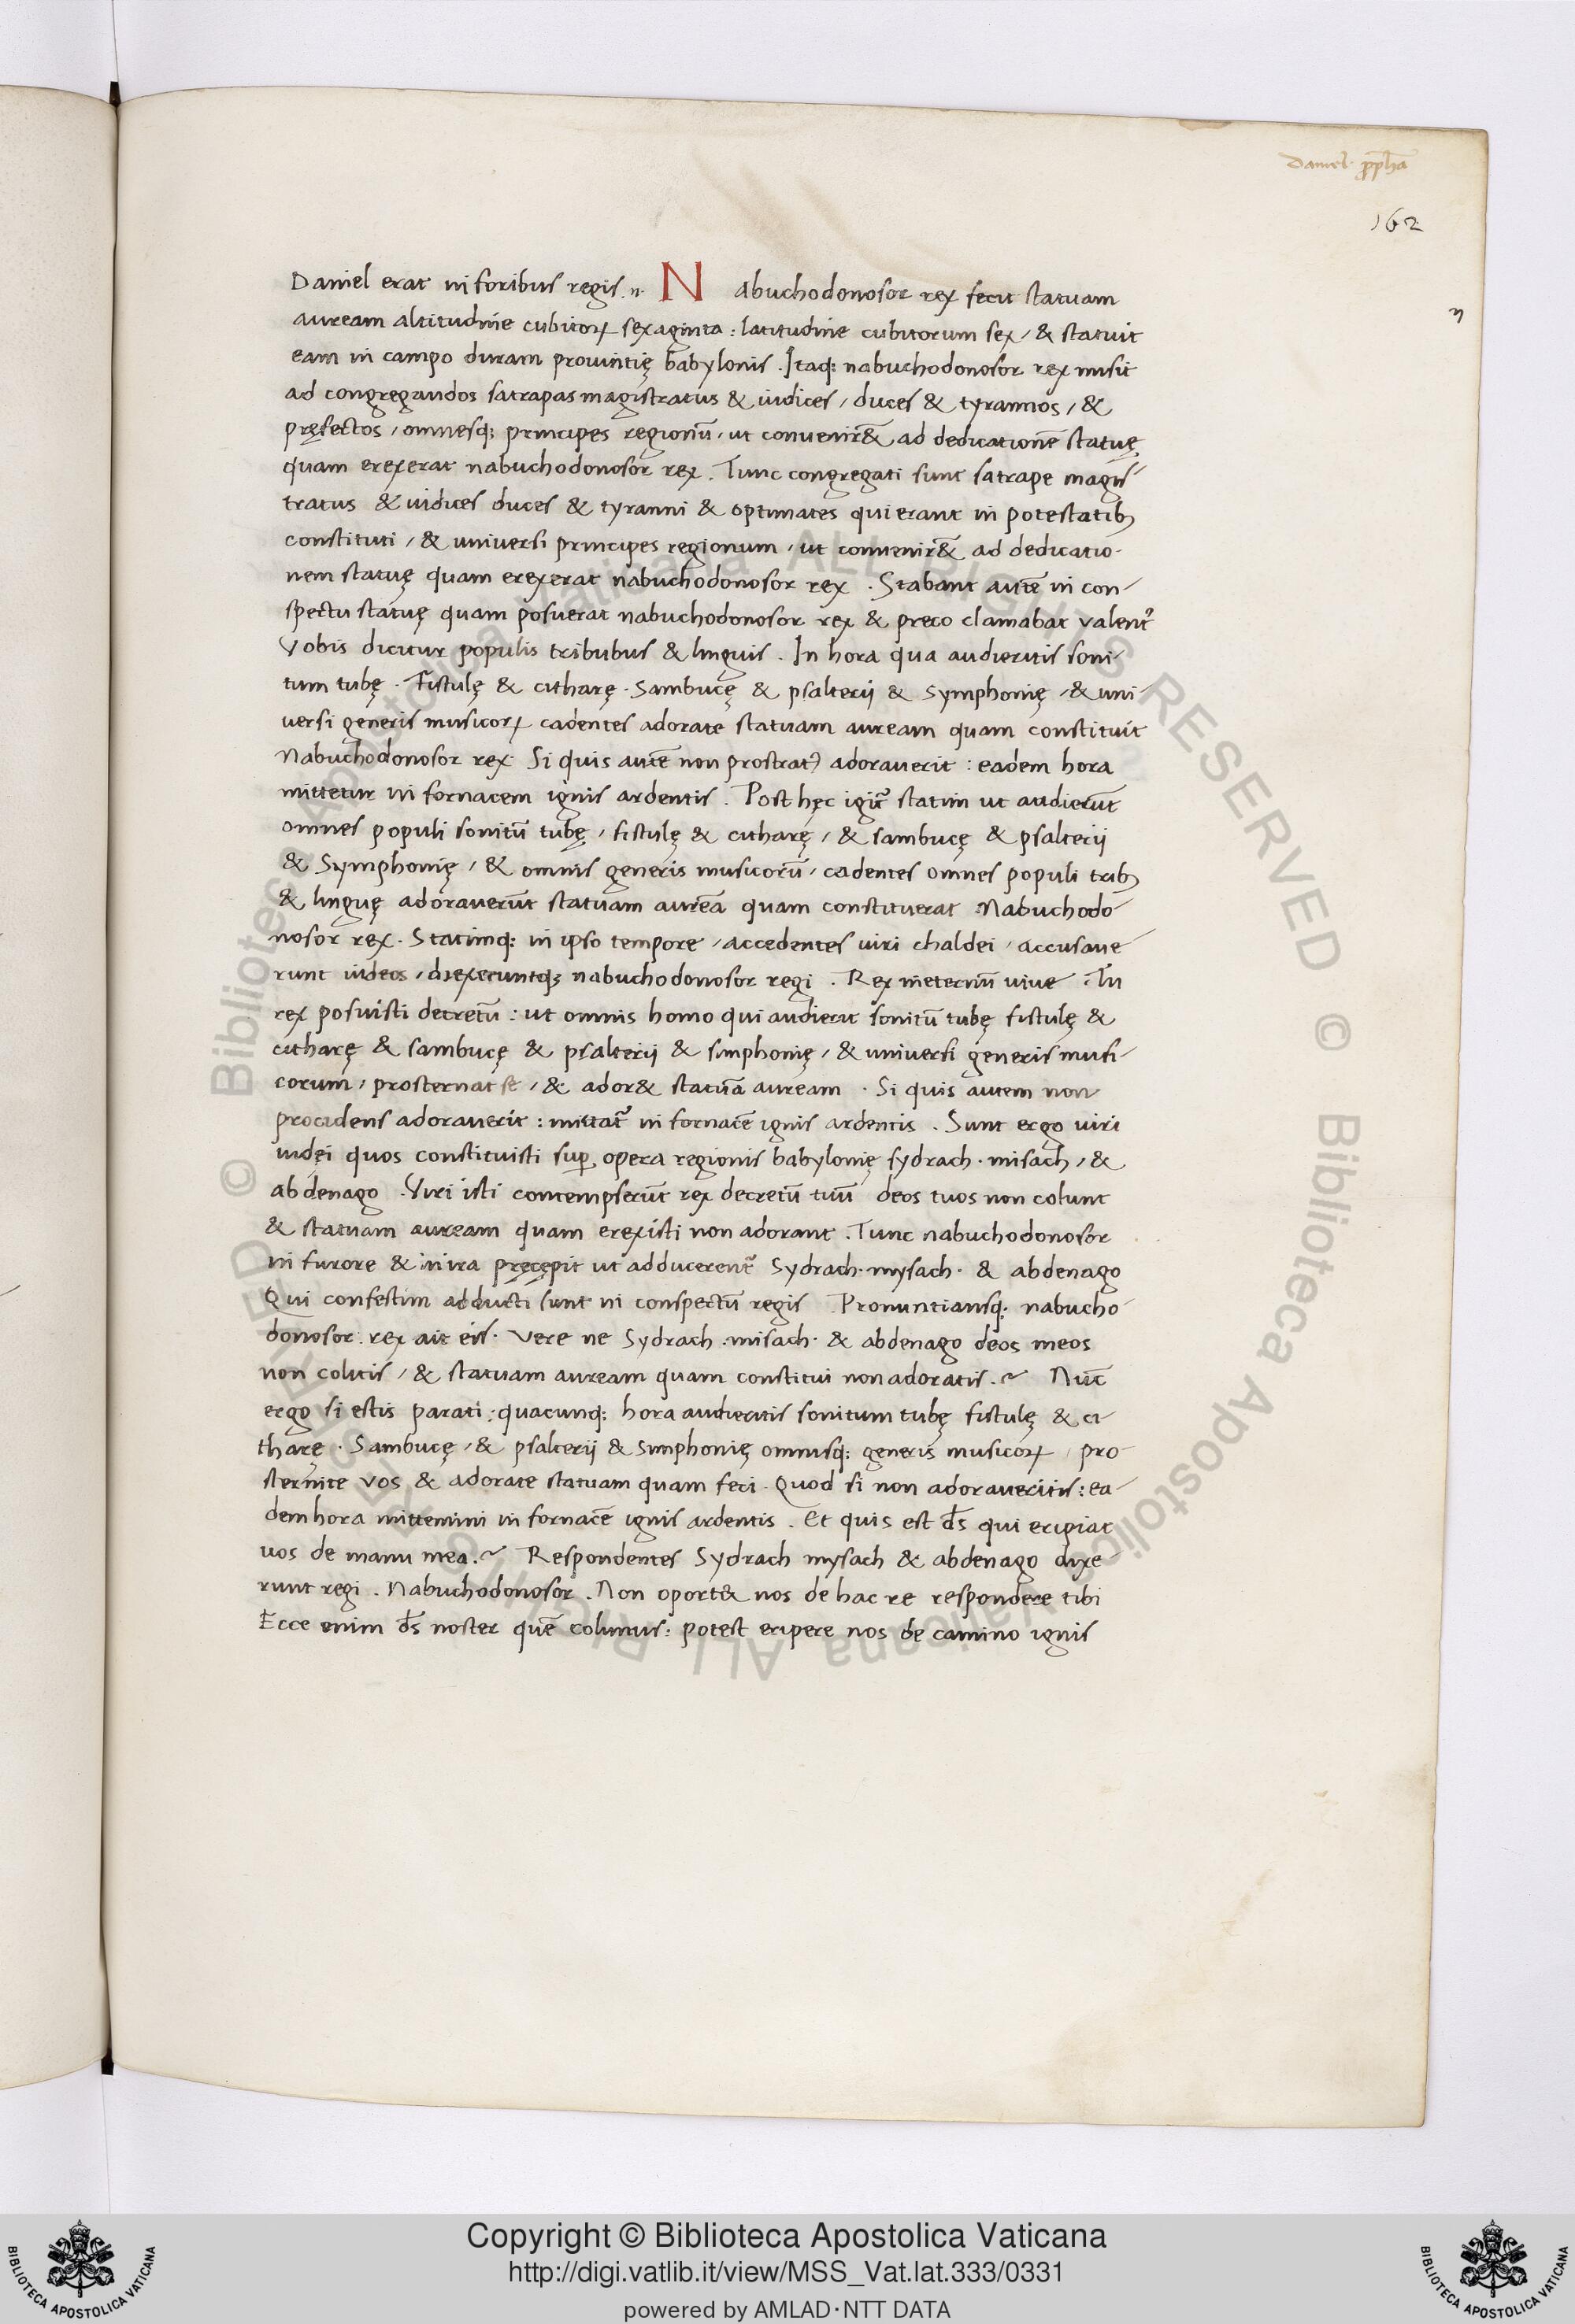 Daniel ꝓph̄a
162
Daniel erat in foribus regis. Nabuchodonosor rex fecit statuam
auream altitudine cubitoꝝ sexaginta : latitudine cubitorum sex / & statuit
eam in campo duram prouintię babylonis . Itaq; nabuchodonosor rex misit
ad congregandos satrapas magistratus & iudices / duces & tyrannos / &
pręfectos / omnesq; principes regionū / ut conuenir& ad dedicationē statuę
quam erexerat nabuchodonosor rex . Tunc congregati sunt satrape magis
tratus & iudices duces & tyranni & optimates qui erant in potestatibꝫ
constituti / & universi principes regionum / ut conuenir& ad dedicatio-
nem statuę quam erexerat nabuchodonosor rex . Stabant autē in con-
spectu statuę quam posuerat nabuchodonosor rex & preco clamabat valent᷑
Vobis dicitur populis tribubus & linguis . In hora qua audieritis soni-
tum tubę . Fistulę & citharę . Sambucę & psalterij & symphonię / & uni-
versi generis musicoꝝ cadentes adorate statuam auream quam constituit
Nabuchodonosor rex Si quis autē non prostratꝰ adorauerit : eadem hora
mittetur in fornacem ignis ardentis . Post hęc igit᷑ statim ut audierūt
omnes populi sonitū tubę / fistulę & citharę / & sambucę & psalterij
& Symphonię / & omnis generis musicorū / cadentes omnes populi tribꝫ
& linguę adorauerūt statuam aureā quam constituerat Nabuchodo-
nosor rex . Statimq; in ipso tempore / accedentes uiri chaldei / accusaue-
runt iudeos / dixeruntqꝫ nabuchodonosor regi . Rex ineternū uiue . Tu
rex posuisti decretū : ut omnis homo qui audierit sonitū tubę fistulę &
citharę & sambucę & psalterij & simphonię / & universi generis musi-
corum / prosternat se / & ador& statuā auream . Si quis autem non
procidens adorauerit : mittat᷑ in fornacē ignis ardentis . Sunt ergo uiri
iudęi quos constituisti suꝑ opera regionis babylonię sydrach . misach / &
abdenago . Viri isti contempserūt rex decretū tuū deos tuos non colunt
& statuam auream quam erexisti non adorant . Tunc nabuchodonosor
in furore & in ira pręcępit ut adducerent᷑ Sydrach . mysach . & abdenago
Qui confestim adducti sunt in conspectū regis Pronuntiansq; nabucho-
donosor . rex ait eis . Vere ne Sydrach . misach . & abdenago deos meos
non colitis / & statuam auream quam constitui non adoratis . ~ Nūc
ergo si estis parati : quacunq; hora audieritis sonitum tubę fistulę & ci-
tharę . Sambucę / & psalterij & simphonię omnisq; generis musicoꝝ / pro-
sternite vos & adorate statuam quam feci . Quod si non adoraueritis : ea-
dem hora mittemini in fornacē ignis ardentis . Et quis est d̄s qui eripiat
uos de manu mea . ~ Respondentes Sydrach mysach & abdenago dixe-
runt regi . Nabuchodonosor . Non oport& nos de hac re respondere tibi
Ecce enim d̄s noster quē colimus : potest eripere nos de camino ignis
© Biblioteca Apostolica Vaticana ALL RIGHTS RESERVED
Copyright © Biblioteca Apostolica Vaticana
http://digi.vatlib.it/view/MSS_Vat.lat.333/0331
powered by AMLAD·NTT DATA
BIBLIOTECA APOSTOLICA VATICANA
BIBLIOTECA APOSTOLICA VATICANA